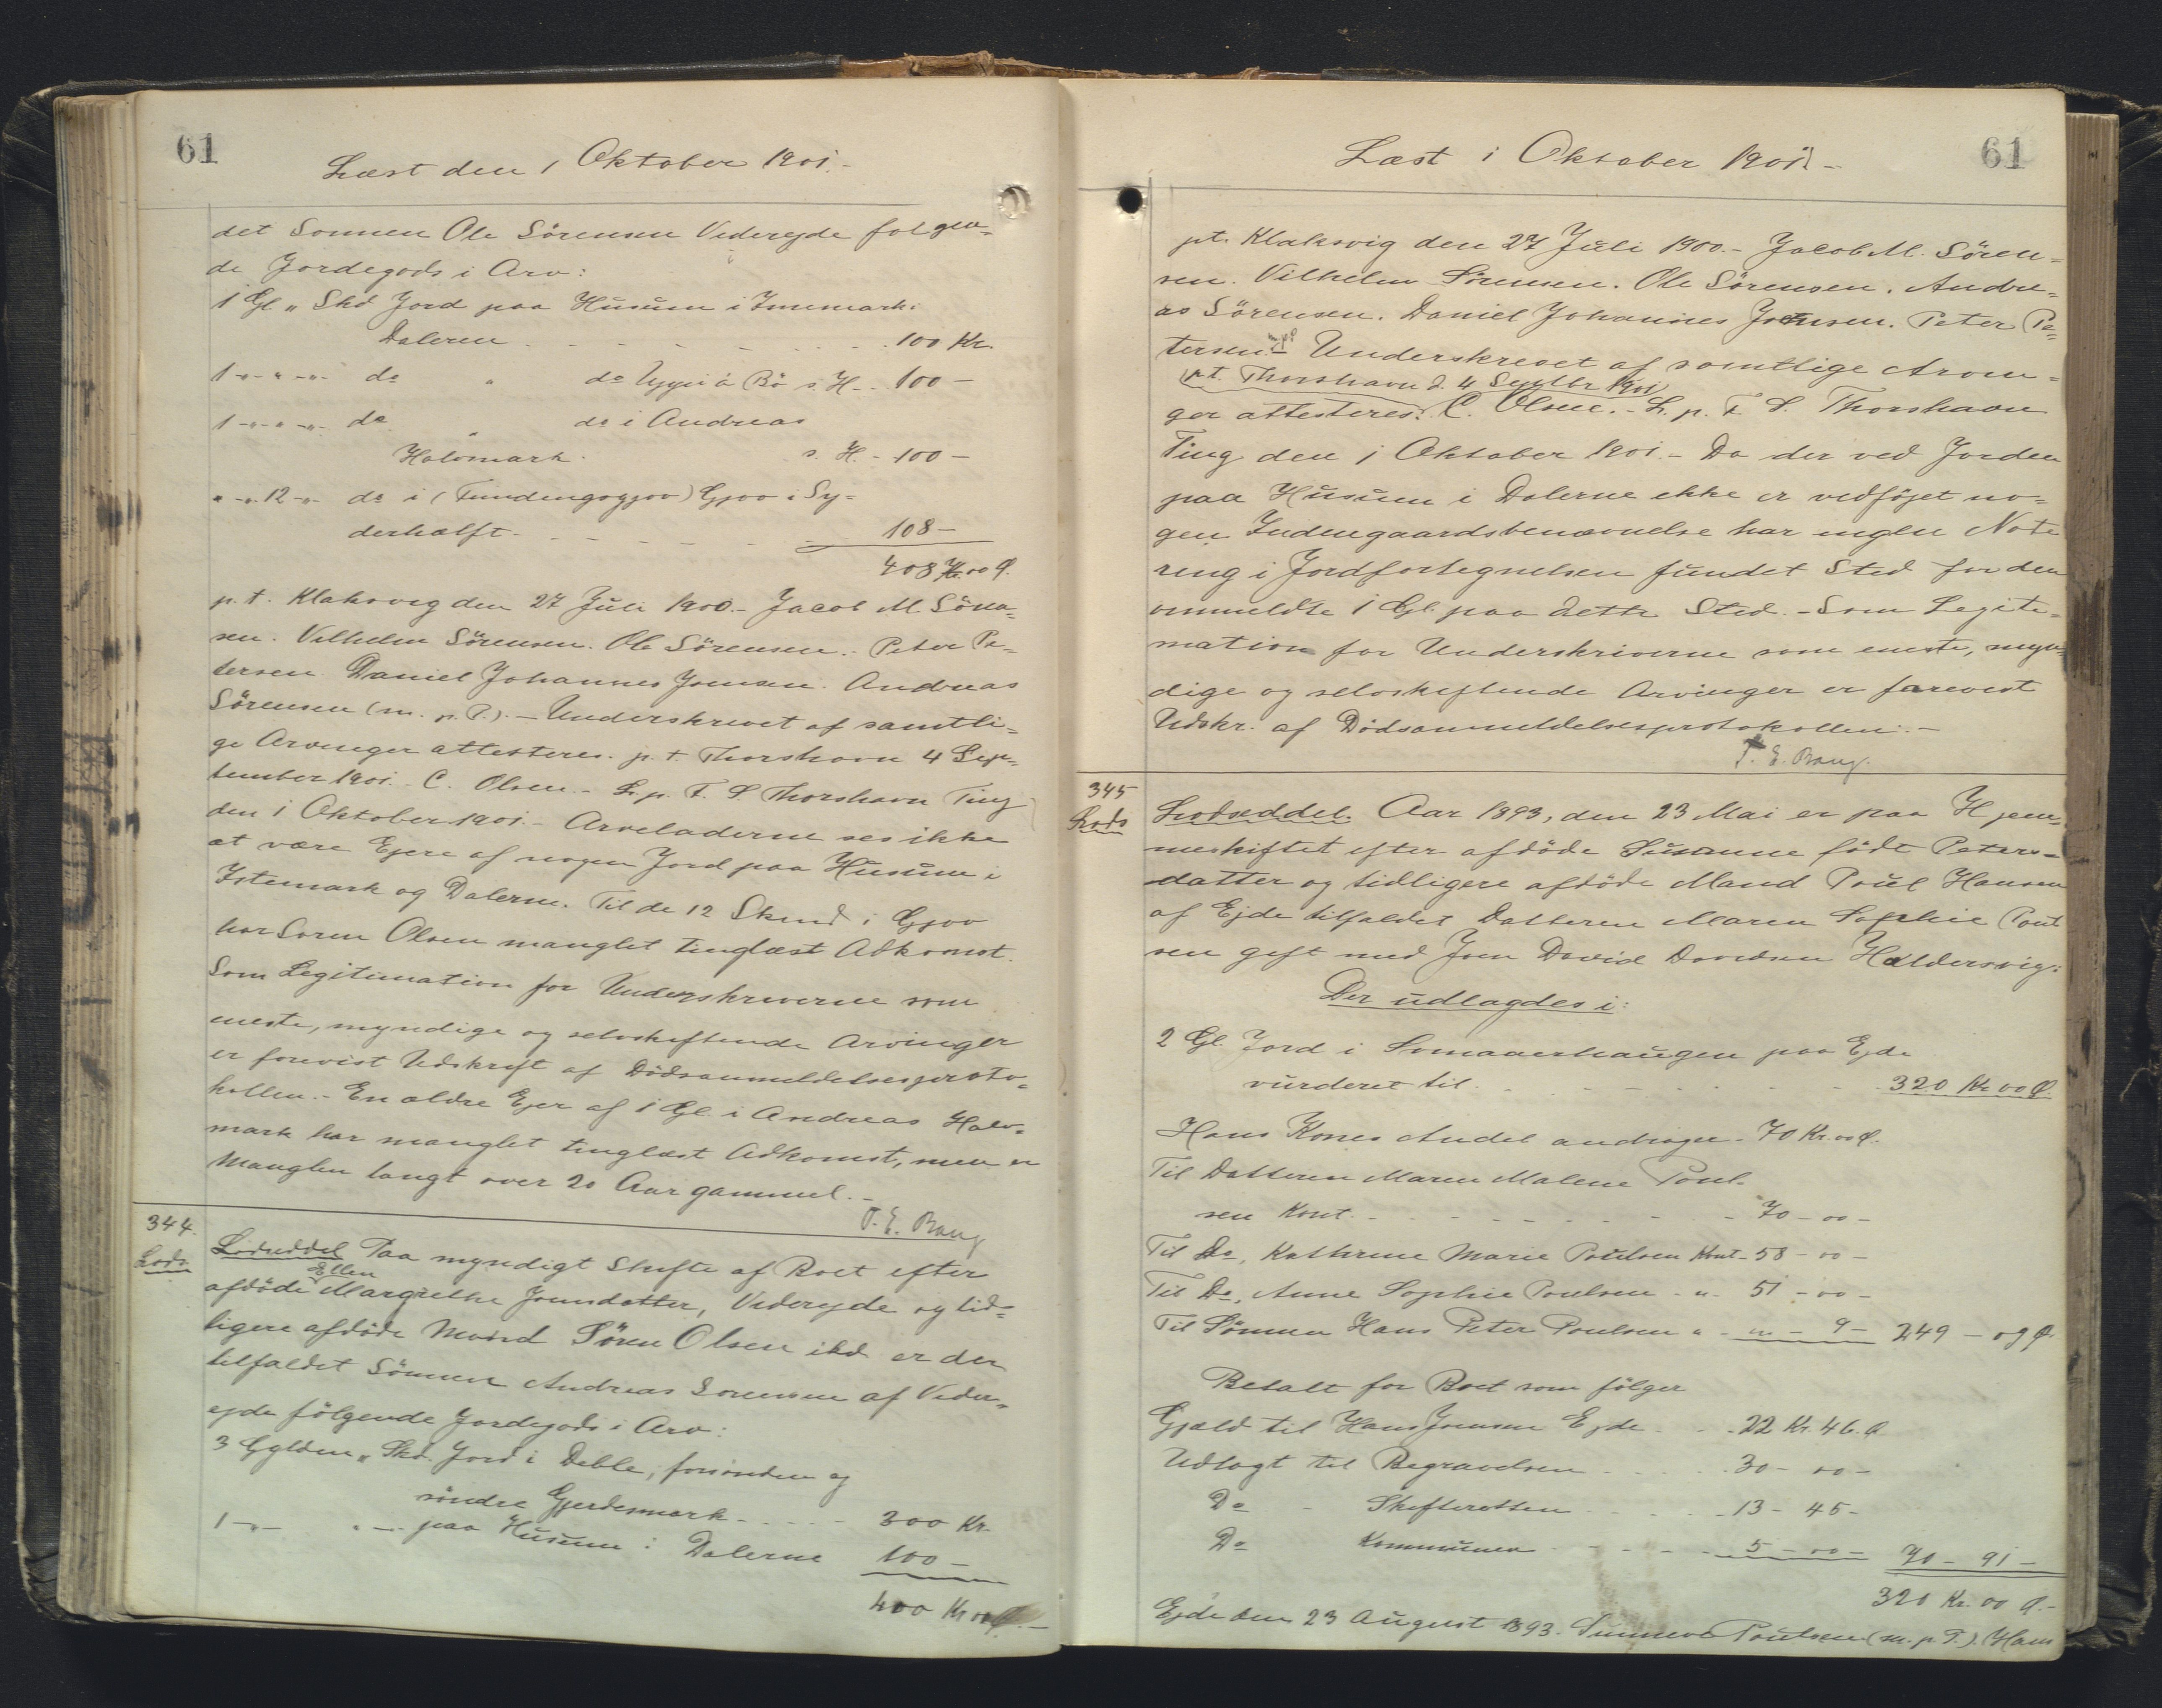 61
Læst den 1 Oktober 1901.-
det Sonnen Ole Sörensen Viderejde folgen=
de Jordegods i Arv:
1 Gl " Skd Jord paa Husum i Innmark:
Dalerne . - - - - - - . 100 Kr.
1 -"- " -"- do " do Uppi á Bö s. H. - 100 -
1 -"- " -"- do " do i Andreas
Halvmark. s. H. - 100 -
" -"- 12 -"- do i (Funding ) Gjov i Sy=
derhalft. - - - - - - 108 -
408 Kr. 00 Ø.
p. t. Klaksvig den 27 Juli 1900. - Jacob M. Sören=
sen. Vilhelm Sörensen. Ole Sörensen. - Peter Pe=
tersen. Daniel Johannes Joensen. Andreas
Sörensen (m. p. P.). - Underskrevet af samtli=
ge Arvinger attesteres. p. t. Thorshavn 4 Sep=
tember 1901. C. Olsen. - L. p. F. S. Thorshavn Ting
den 1 Oktober 1901. - Arveladerne ses ikke
at være Ejere af nogen Jord paa Husum i
Istemark og Dalerne. Til de 12 Skind i Gjov
har Soren Olsen manglet tinglæst Adkomst.
Som Legitimation for Underskriverne som
eneste, myndige og selvskiftende Arvinger
er forevist Udskrift af Dödsanmeldelsesproto=
kollen. - En ældre Ejer af 1 Gl. i Andreas Halv=
mark har manglet tinglæst Adkomst, men er
Manglen langt over 20 Aar gammel. -
T. E. Bang
344.
Lods
Lodseddel Paa myndigt Skifte af Boet efter
afdöde Ellen Margrethe Joensdatter, Viderejde og tid=
ligere afdöde Mand Sören Olsen ibd er der
tilfaldet Sönnen Andreas Sorensen af Vider=
ejde fölgende Jordegods i Arv:
3 Gylden " Skd. Jord i Deble, foroinden og
söndre Gjerdesmark - . . - - 300 Kr.
1 -"- " -"- paa Husum i Dalerne 100 -
400 Kr 00 Ø. -
Læst 1 Oktober 1901. -
61
pt. Klaksvig den 27 Juli 1900. - Jacob M. Sören=
sen. Vilhelm Sörensen. Ole Sörensen. Andre=
as Sörensen. Daniel Johannes Joensen. Peter Pe=
tersen. mpP - Underskrevet af samtlige Arvin=
p.t. Thorshavn d. 4 Septbr 1901
ger attesteres. C. Olsen. - L. p. F. S. Thorshavn
Ting den 1 Oktober 1901. - Da der ved Jorden
paa Husum i Dalerne ikke er vedföjet no=
gen Indengaardsbenævnelse har ingen Note
ring i Jordfortegnelsen fundet Sted for den
ommeldte 1 Gl. paa dette Sted. - Som Legiti=
mation for Underskriverne som eneste, myn=
dige og selvskiftende Arvinger er forevist
Udskr. af Dödsanmeldelsesprotokollen. -
T. E. Bang.
345
Lods
Lodseddel. Aar 1893, den 23 Mai er paa Hjem=
meskiftet efter afdöde Susanne födt Peters=
datter og tidligere afdöde Mand Poul Hansen
af Ejde tilfaldet Datteren Maren Sophie Poul
sen gift med Joen David Davidsen Haldersvig:
Der udlagdes i:
2 Gl. Jord i Svmaaerhaugen paa Ejde
vurderet til. - - - - - - 320 Kr 00 Ø.
Hans Kones Andel andrager - 70 Kr. 00 Ø.
Til Datteren Maren Malene Poul-
sen Kont. - - - - - - - - 70 - 00 -
Til Do, Kathrine Marie Poulsen Kont - 58 - 00 -
Til Do, Anne Sophie Poulsen - " - 51 - 00 -
Til Sönnen Hans Peter Poulsen " - " - 9 - 249 - 09 Ø.
Betalt for Boet som fölger
Gjæld til Hans Joensen Ejde . . . 22 Kr. 46. Ø
Udlagt til Begravelsen . . . . . . 30 - 00 -
Do - Skifteretten . . . . 13 - 45 -
Do Kommunen - - - - - 5 - 00 - 70 - 91 -
320 Kr. 00 Ø. -
Ejde den 23 August 1893. Sunneva Poulsen (m. p. P.). Hans